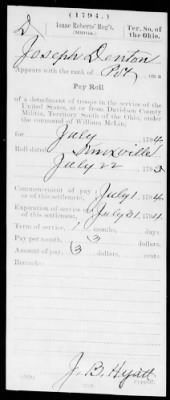 (1794.)
D Isaac Roberts' Reg't. Ter. So. of the Ohio.
(MILITIA.)
Joseph Denton
Appears with the rank of Pvt on a
Pay Roll
of a detachment of troops in the service of the
United States, at or from Davidson County
Militia, Territory South of the Ohio, under
the command of William McLin,
for July 1794
Roll dated Knoxville
July 22 179
Commencement of pay or of this settlement, July 1, 1794.
Expiration of service or of this settlement, July 31, 1794.
Term of service, 1 months, days
Pay per month, 3 dollars, cents.
Amount of pay, 3 dollars, cents.
Remarks:
J. B. Hyatt
Copyist.